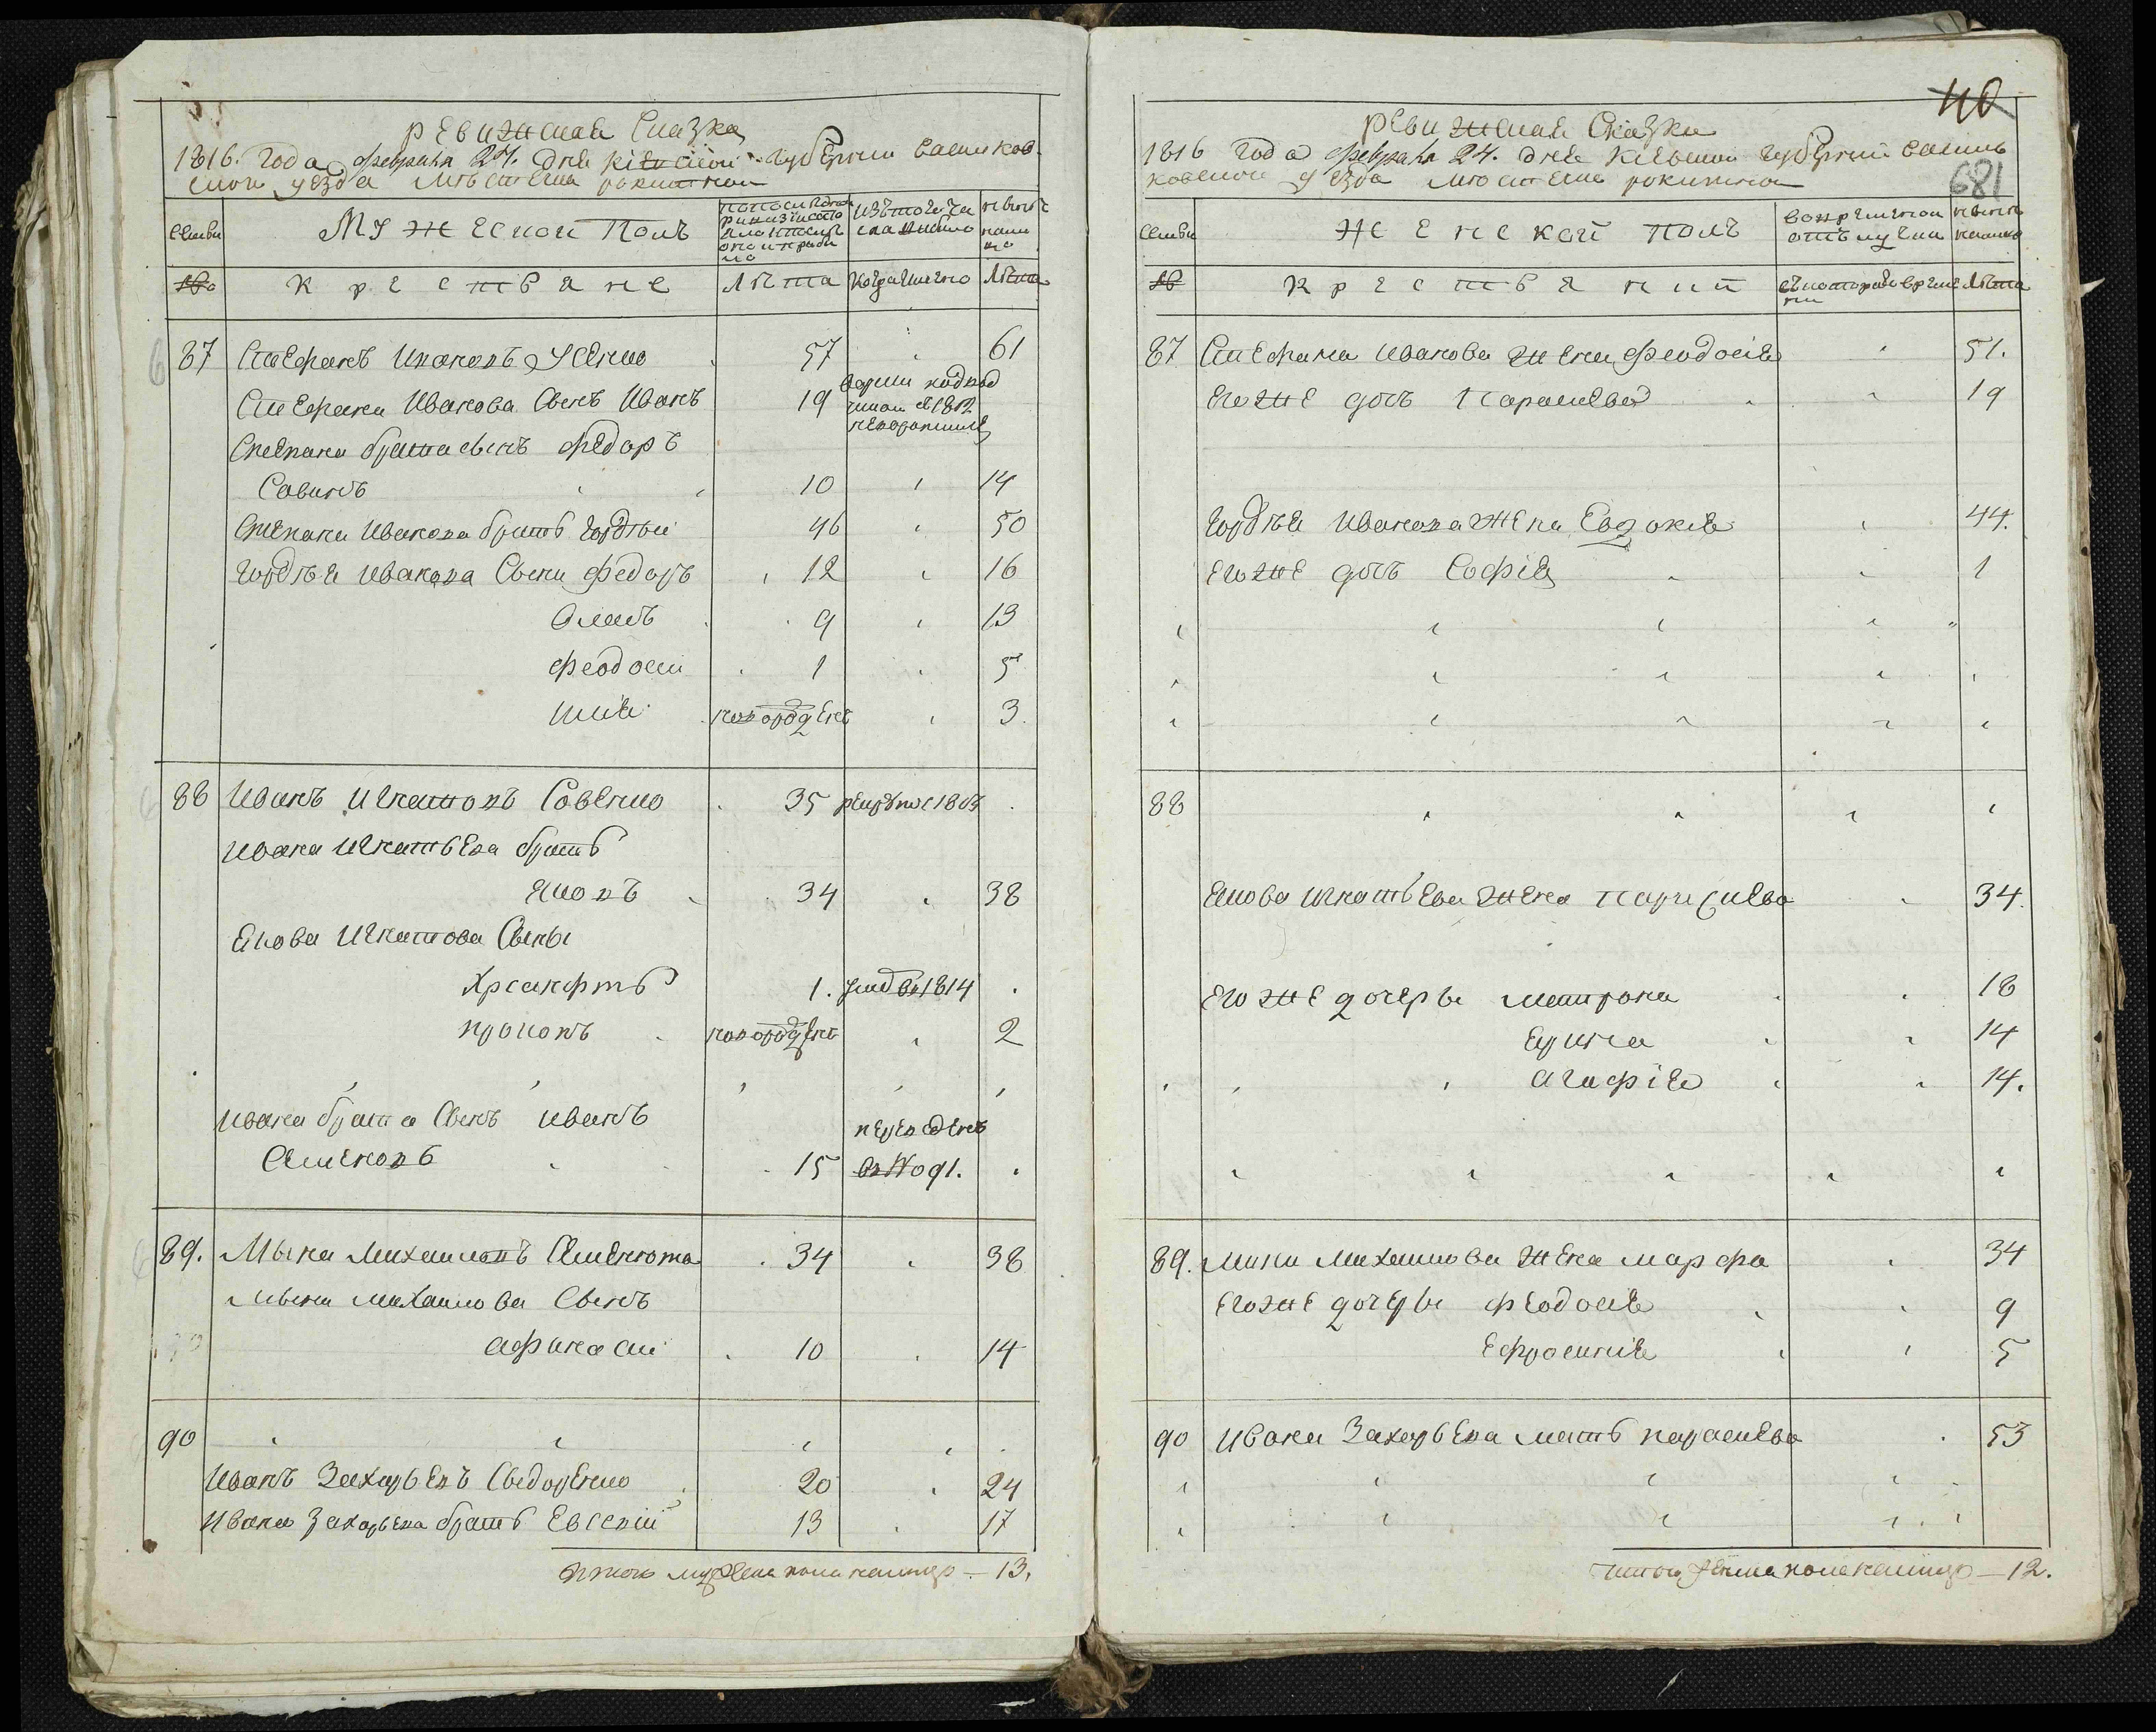 ревижская сказка
1816. года февраля 24. дня киевской губернии васильков
ской уезда местечка рокитной
семьи
Мужеской полъ
Крестьяне
Лета
когда именно
Лета
87 Стефанъ Ивановъ Усенко 57 61
Стефана Иванова Сынъ Иванъ 19
1812
Степана брата сынъ федоръ
Савинъ 10 14
Степана Иванова братъ гордей 46 50
гордея Иванова Сыни Федоръ 12 16
9 13
феодоси 1 5
Илия новорожденъ 3
88 Иванъ Игнатовъ Савенко 35
Ивана Игнатьева братъ
Яковъ 34 38
Якова Игнатова Сыны
1. 1814
прокопъ новорожденъ 2
Ивана брата Сынъ Иванъ переведенъ
Семеновъ 15 въ No 91.
89. Мына Михаиловъ 34 38
Мыны Михаилова Сынъ
афанаси 10 14
90
Иванъ Захарьевъ Сидоренко 20 24
Ивана Захарьева братъ Евсевий 13 17
Итого мужеска пола налицо — 13.
40
ревижская Сказка
1816 года февраля 24. дня Киевской губернии василь
ковской уезда местечка рокитной
681
семьи
Женской полъ
временной отълучки
Крестьянки
Лета
87 Стефана Иванова жена феодосия 51.
Его же дочь Параскева 19
гордея Иванова жена Евдокия 44.
Его же дочь София 1
88
Якова Игнатьева жена Параскева 34.
Его же дочеры матрона 18
14
Агафия 14.
89. Мины Михаилова жена марфа 34
Его же дочеры феодосия 9
Ефросиния 5
90 Ивана Захарьева мать параскева 53
Итого женска пола налицо — 12.